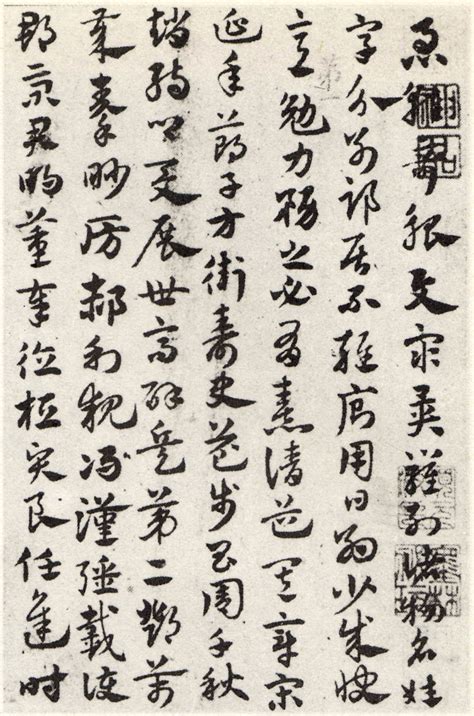 急就奇觚與眾異羅列諸物名姓
字分別部居不雜廁用日約少誠快
意勉力務之必有憙請道其章宋
延年鄭子方衛壽史步昌周千秋
趙孺卿爰展世高辟兵第二鄧萬
歲秦妙房郝利親馮漢彊戴護
郡景君明董奉德桓賢良任逢時